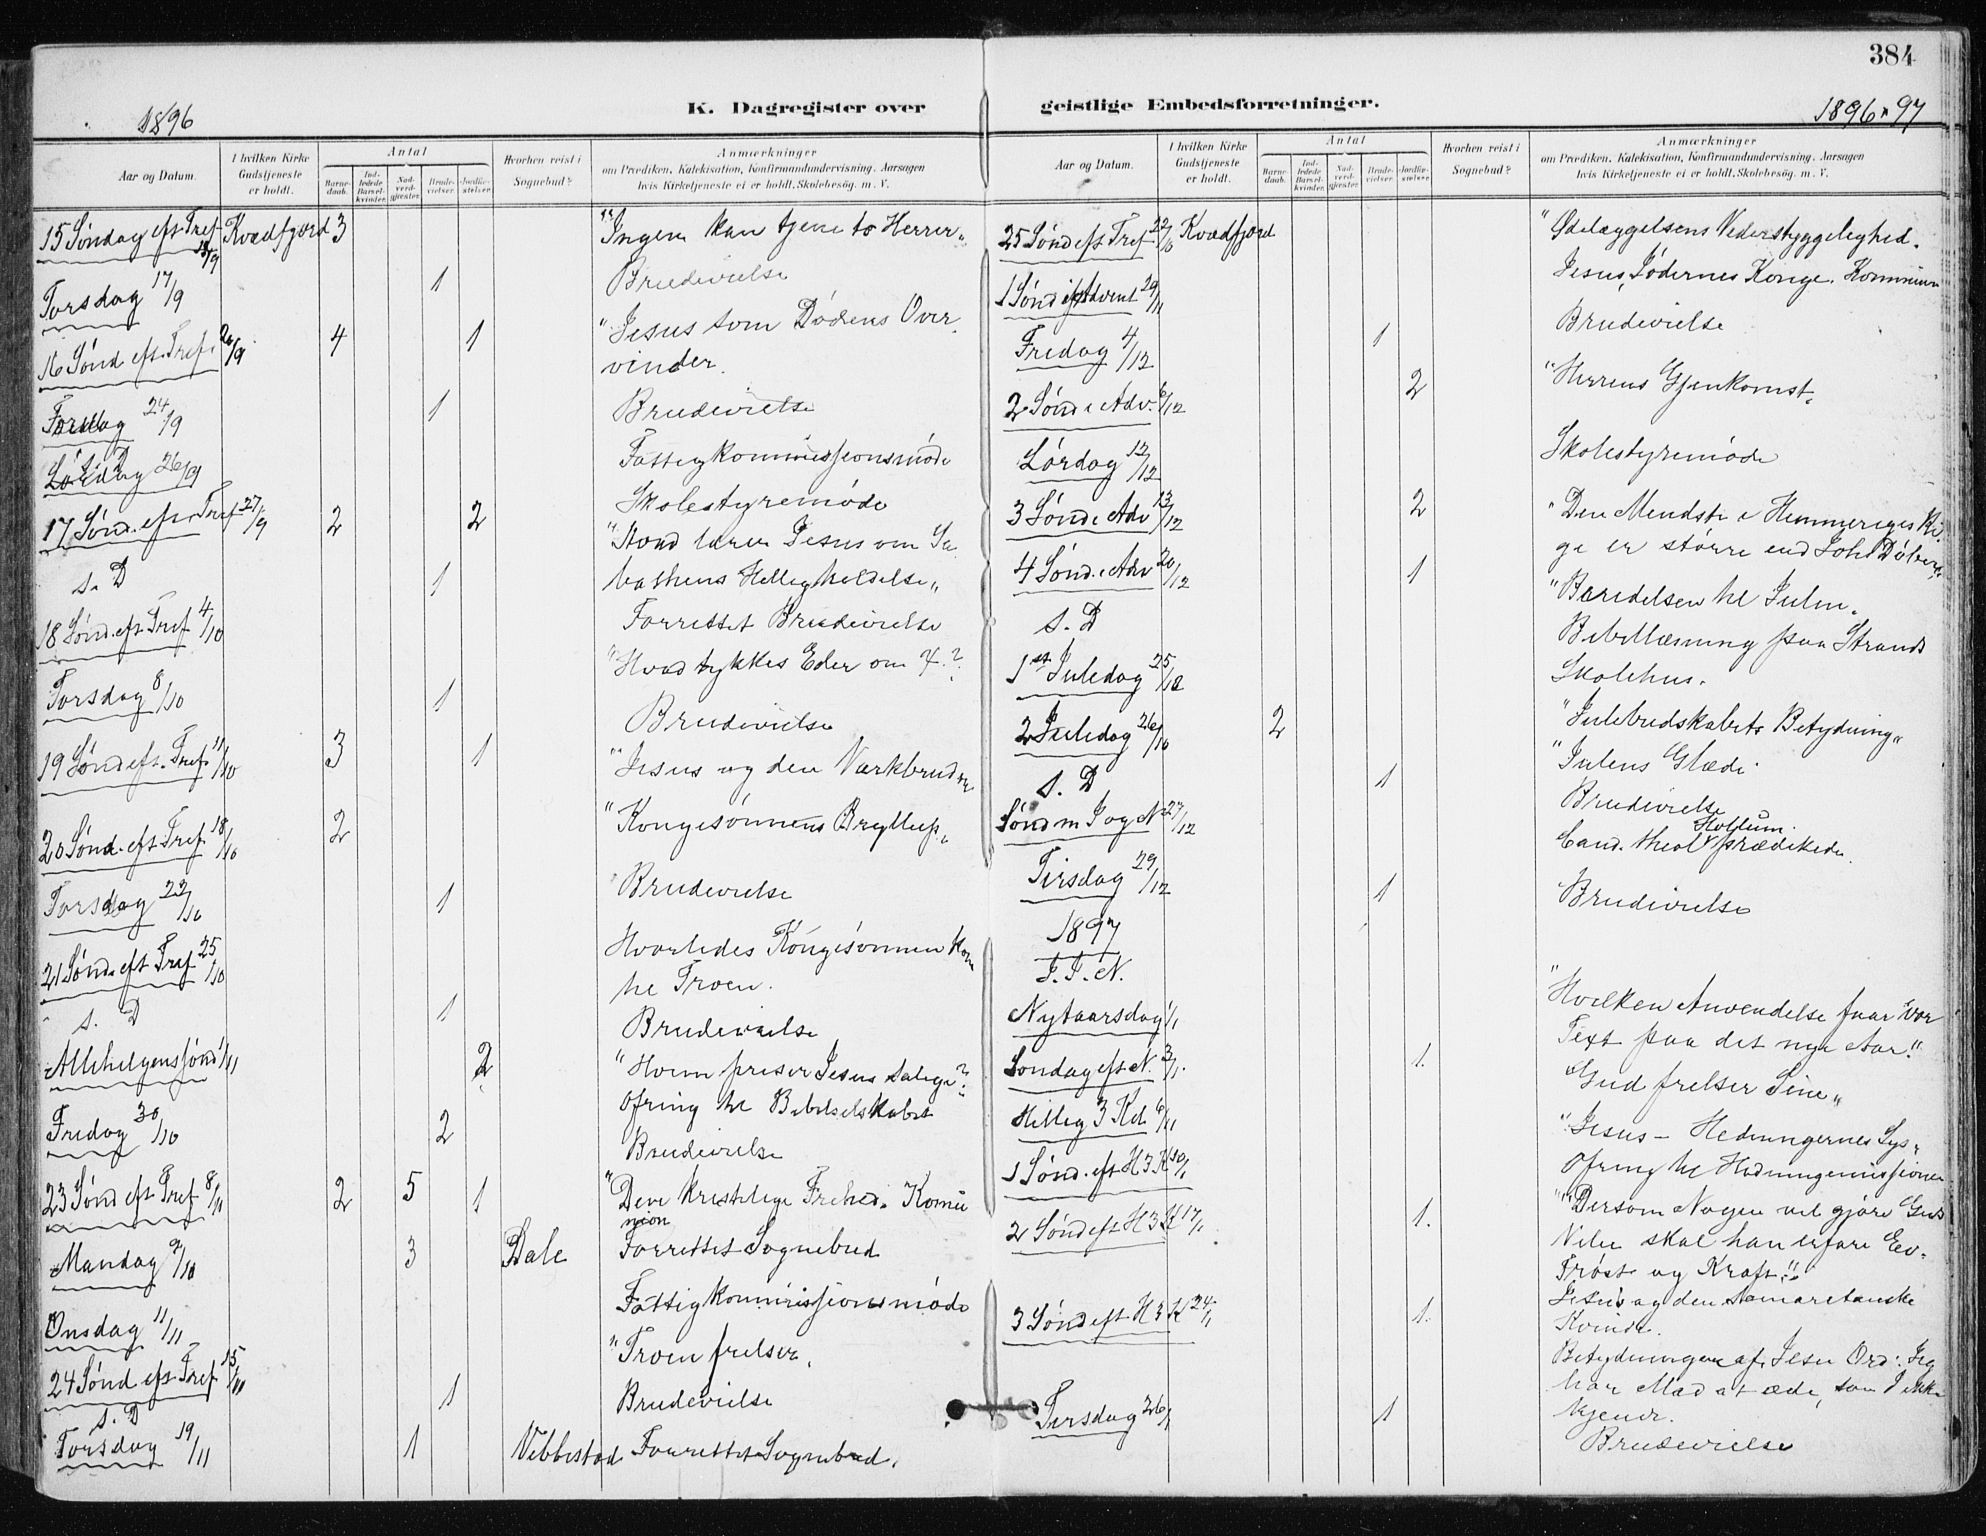 384
K. Dagregister over geistlige Embedsforretninger.
1896
1896-97
Aar og Datum.
I hvilken Kirke Gudstjeneste er holdt.
Antal
Barnedaab.
Indledede Barselkvinder.
Nadverdgjester.
Brudevielser.
Jordfæstelser.
Hvorhen reist i Sognebud?
Anmærkninger
om Prædiken, Katekisation, Konfirmandundervisning. Aarsagen
hvis Kirketjeneste ei er holdt. Skolebesøg. m. V.
15 Søndag eft Tref 13/9 Kvædfjord 3 "Ingen kan tjene to Herrer"
Torsdag 17/9 1 Brudevielse
16 Sønd eft. Tref. 20/9 4 1 "Jesus som Dødens Over
vinder.
24/9 1 Brudevielse
s. D Fattigkommissionsmøde
Lørdag 26/9 Skolestyremøde
17 Sønd. eft. Tref 27/9 2 2 "Hvad lærer Jesus om Sa
bathens Helligholdelse"
s. D 1 Forrettet Brudevielse
18 Sønd. eft Tref 4/10 "Hvad tykkes Eder om X.?
Torsdag 8/10 1 Brudevielse
19 Sønd eft. Tref. 11/10 3 1 "Jesus og den Værkbrudne
20 Sønd. eft Tref 18/10 2 "Kongesønnens Bryllup"
Torsdag 22/10 1 Brudevielse
21 Sønd. eft Tref 25/10 Hvorledes Kongesønnen kom
til Troen.
s. D 1 Brudevielse
Allehelgenssønd 1/11 2 "Hvem priser Jesus salige?"
Ofring til Bibelselskabet
Fredag 30/10 2 Brudevielse
23 Sønd eft Tref 8/11 2 5 1 "Den kristelige Frihed. Komu
nion
Mandag 9/10 3 Dale Forrettet Sognebud
Onsdag 11/11 Fattigkommissionsmøde
24 Sønd eft Tref 15/11 "Troen frelser.
s. D 1 Brudevielse
Torsdag 19/11 1 Vebbestad Forrettet Sognebud.
Aar og Datum.
I hvilken Kirke Gudstjeneste er holdt.
Antal
Barnedaab.
Indledede Barselkvinder.
Nadverdgjester.
Brudevielser.
Jordfæstelser.
Hvorhen reist i Sognebud?
Anmærkninger
om Prædiken, Katekisation, Konfirmandundervisning. Aarsagen
hvis Kirketjeneste ei er holdt. Skolebesøg. m. V.
25 Sønd eft Tref 22/ Kvædfjord "Ødelæggelsens Vederstyggelighed.
1 Sønd i Advent 29/11 Jesus, Jødernes Konge. Kommunion
Fredag 4/12 1 Brudevielse
2 Sønd i Adv. 6/12 2 "Herrens Gjenkomst.
Lørdag 12/12 Skolestyremøde
3 Sønd i Adv 13/12 2 "Den Mindste i Himmeriges Ri
ge er større end Joh. Døberen
4 Sønd. i Adv 20/12 1 "Beredelsen til Julen.
s. D Bibellæsning paa Strands
Skolehus.
1ste Juledag 25/12 "Julebudskabets Betydning"
2 Juledag 26/ 2 "Julens Glæde
s. D 1 Brudevielse
Sønd m J og N 27/12 Cand. theol Holtum. prædikede.
Tirsdag 29/12 1 Brudevielse
1897
I. J. N.
Nytaarsdag 1/1 "Hvilken Anvendelse faar vor
Text paa det nye Aar."
Søndag eft N. 3/1. 1. "Gud frelser Sine"
Hellig 3 Kd. 6/1 "Jesus - Hedningernes Lys"
Ofring til Hedningemissionen
1 Sønd. eft H3K 10/1 "Dersom Nogen vil gjøre Guds
2 Sønd eft H3K 17/1 1. Vilie skal han erfare Ev.
Trøst og Kraft."
3 Sønd eft H3K 24/1 1. Jesus og den samaritanske
Kvinde.
Betydningen af Jesu Ord: Jeg
har Mad at æde, som I ikke
kjende.
Tirsdag 26/1 1 Brudevielse